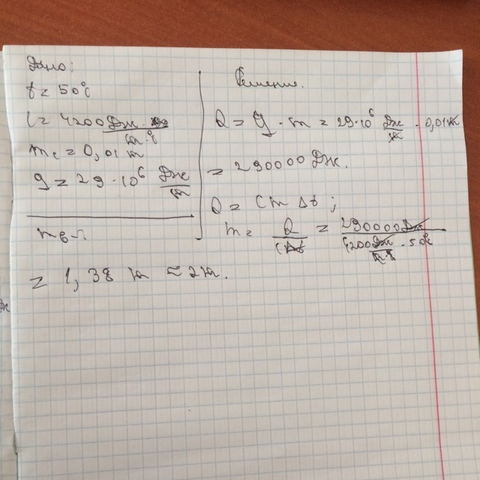 Дано:
t = 50°C
C = 4200 Дж / кг·°C
m_c = 0,01 кг
q = 29·10⁶ Дж/кг
m_в - ?
Решение.
Q = q · m = 29·10⁶ Дж/кг · 0,01 кг
= 290000 Дж.
Q = Cm Δt;
m = Q / CΔt = 290000 Дж / 4200 Дж/кг·°C · 50°C
= 1,38 кг ≈ 2 кг.